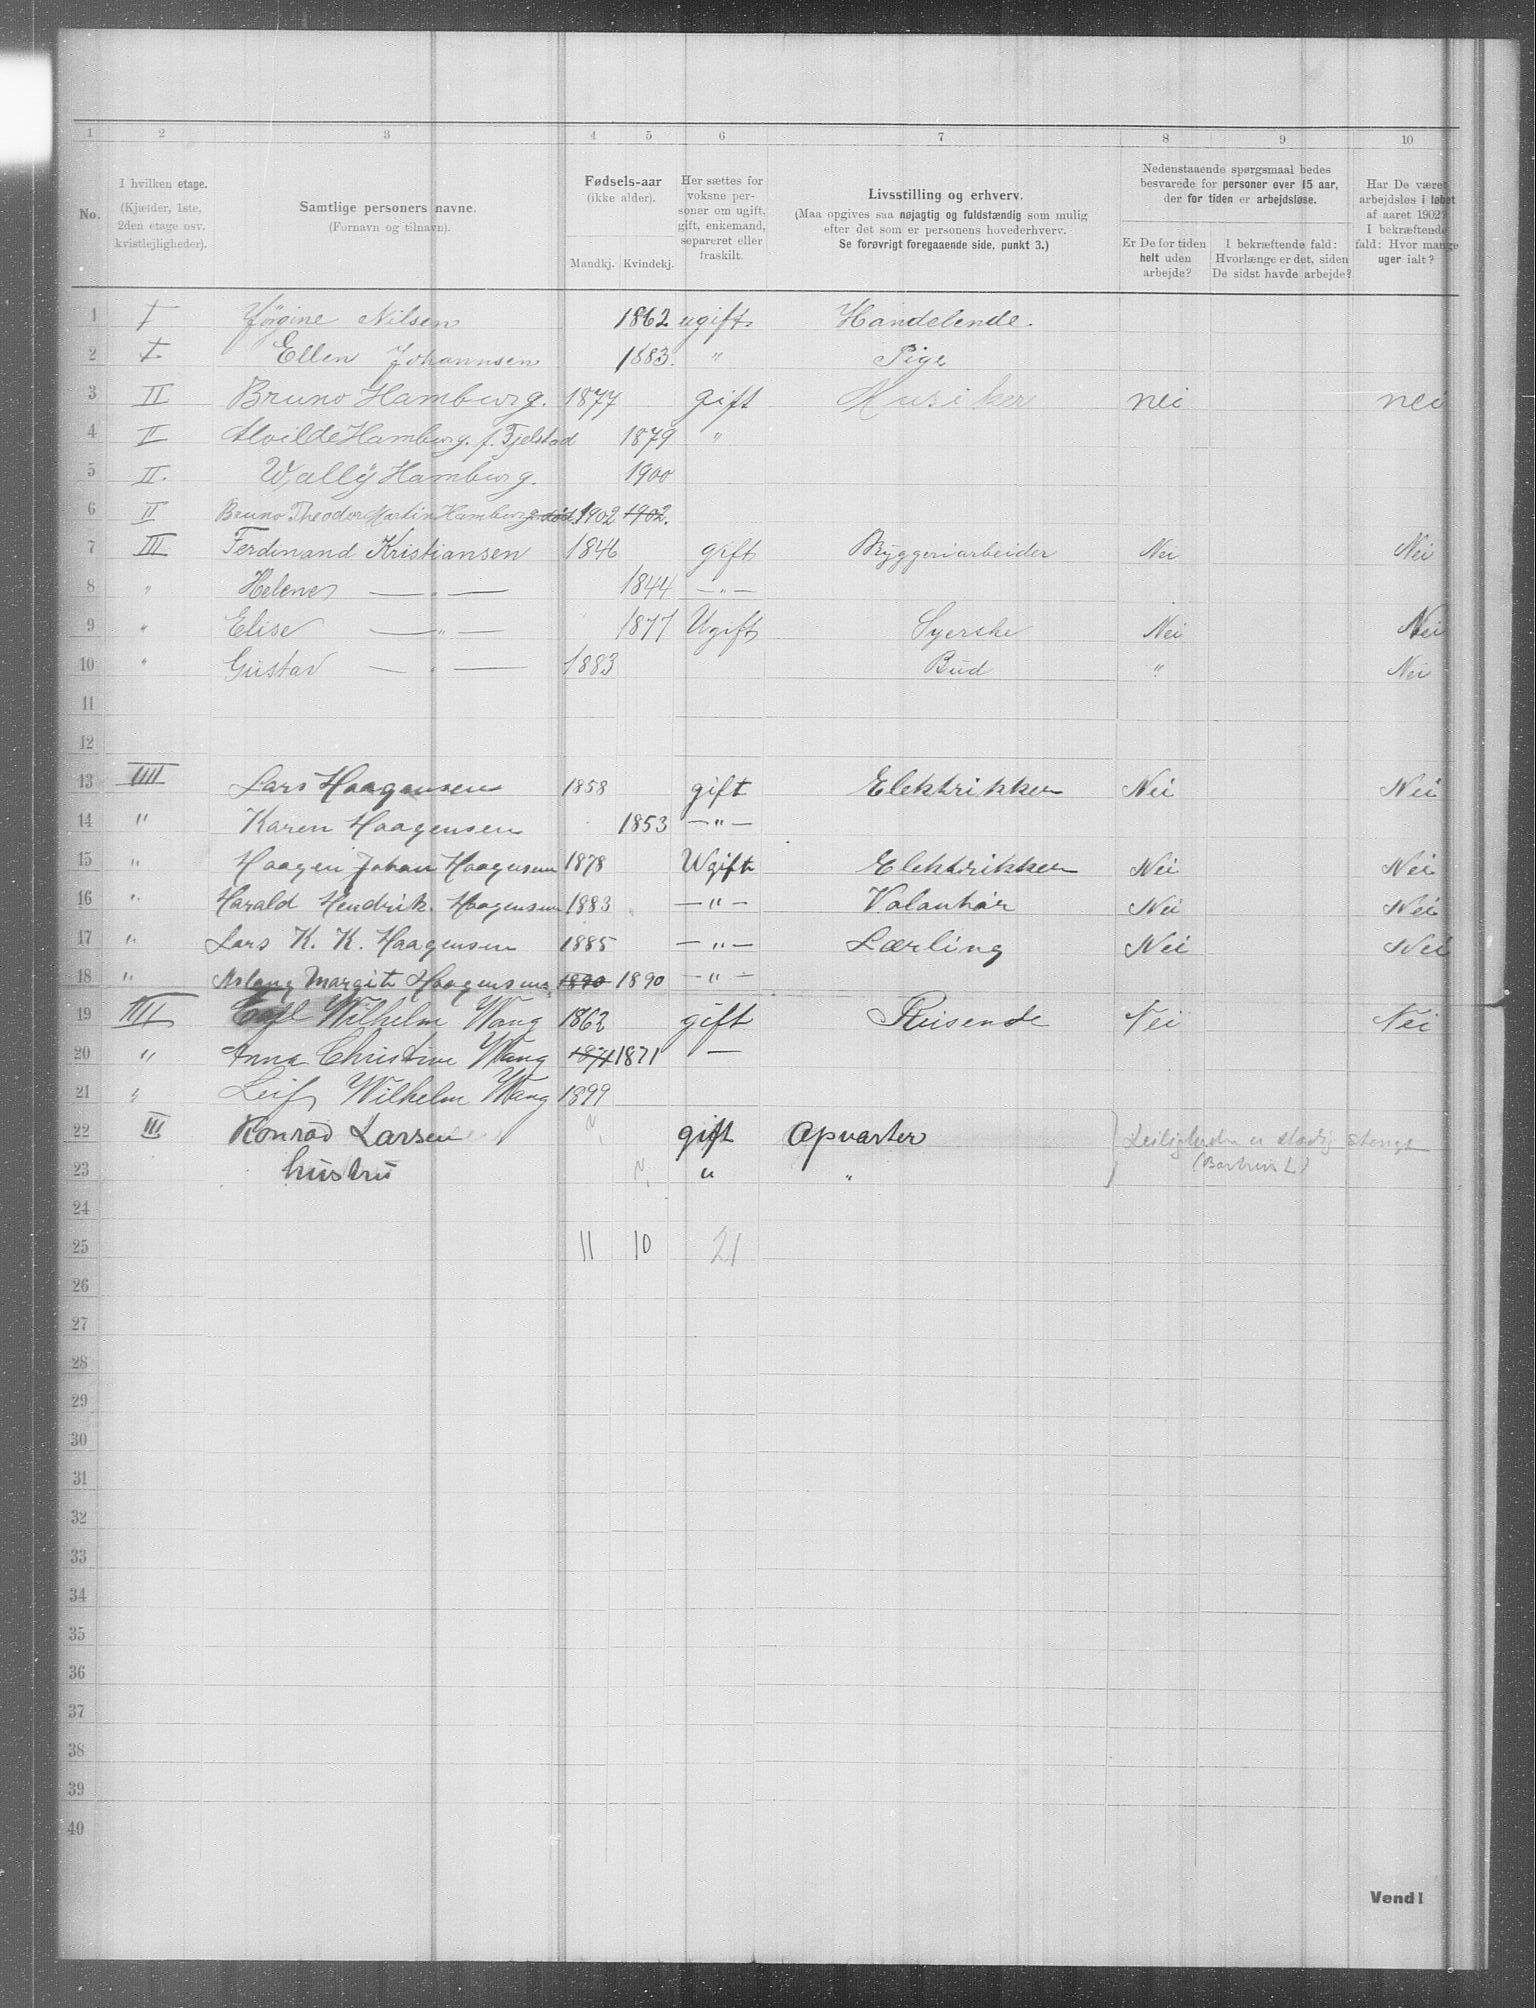 1 2 3 4 5 6 7 8 9 10
No.
I hvilken etage.
(Kjælder, 1ste,
2den etage osv.
kvistlejligheder).
Samtlige personers navne.
(Fornavn og tilnavn).
Fødsels-aar
(ikke alder).
Mandkj. Kvindekj.
Her sættes for
voksne per-
soner om ugift,
gift, enkemand,
separeret eller
fraskilt.
Livsstilling og erhverv.
(Maa opgives saa nøjagtig og fuldstændig som mulig
efter det som er personens hovederhverv.
Se forøvrigt foregaaende side, punkt 3.)
Nedenstaaende spørgsmaal bedes
besvarede for personer over 15 aar,
der for tiden er arbejdsløse.
Er De for tiden
helt uden
arbejde?
I bekræftende fald:
Hvorlænge er det, siden
De sidst havde arbejde?
Har De været
arbejdsløs i løbet
af aaret 1902?
I bekræftende
fald: Hvor mange
uger ialt?
1 I Jørgine Nilsen 1862 ugift. Handelende.
2 I Ellen Johannsen 1883. " Pige
3 II Bruno Hamburg. 1877 gift Musiker nei nei
4 II Alvilde Hamburg. f. Fjelstad 1879 "
5 II. Wally Hamburg. 1900
6 II Bruno Theodor Martin Hamburg død. 1902 1902.
7 III Ferdinand Kristiansen 1846 gift Bryggeriarbeider Nei Nei
8 " Helene — " — 1844 — " —
9 " Elise — " — 1877 Ugift Syerske Nei Nei
10 " Gustav — " — 1883 Bud " Nei
11
12
13 IIII Lars Haagensen 1858 gift Elektrikker Nei Nei
14 " Karen Haagensen 1853 — " —
15 " Haagen Johan Haagensen 1878 Ugift Elektrikker Nei Nei
16 " Harald Hendrik. Haagensen 1883 — " — Valantør Nei Nei
17 " Lars K. K. Haagensen 1885 — " — Lærling Nei Nei
18 " Aslaug Margit Haagensen 1890 1890 — " —
19 IIII Wilhelm Wang 1862 gift Reisende Nei Nei
20 " Anna Christine Wang 1871 1871 —
21 " Leif Wilhelm Wang 1899
22 III Konrad Larsen gift Opvarter Leiligheden er stadig stengt
23 hustru " "
24
25 11 10 21
26
27
28
29
30
31
32
33
34
35
36
37
38
39
40
Vend!